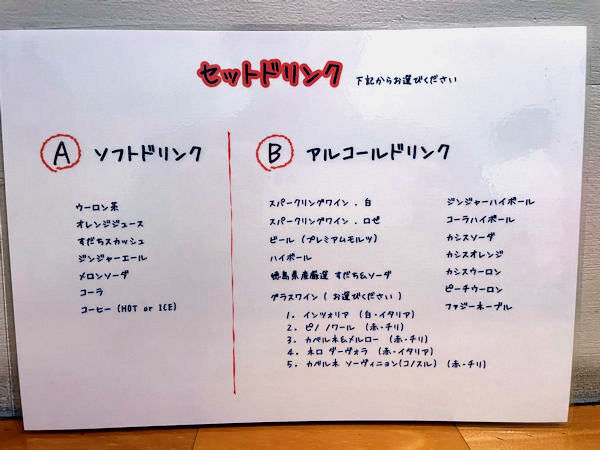 セットドリンク 下記からお選びください
A ソフトドリンク
ウーロン茶
オレンジジュース
すだちスカッシュ
ジンジャーエール
メロンソーダ
コーラ
コーヒー (HOT or ICE)
B アルコールドリンク
スパークリングワイン . 白
スパークリングワイン . ロゼ
ビール (プレミアムモルツ)
ハイボール
徳島県産厳選 すだち&ソーダ
グラスワイン ( お選びください )
1. インツォリア (白・イタリア)
2. ピノ ノワール (赤・チリ)
3. カベルネ&メルロー (赤・チリ)
4. ネロ ダーヴォラ (赤・イタリア)
5. カベルネ ソーヴィニョン(コノスル) (赤・チリ)
ジンジャーハイボール
コーラハイボール
カシスソーダ
カシスオレンジ
カシスウーロン
ピーチウーロン
ファジーネーブル